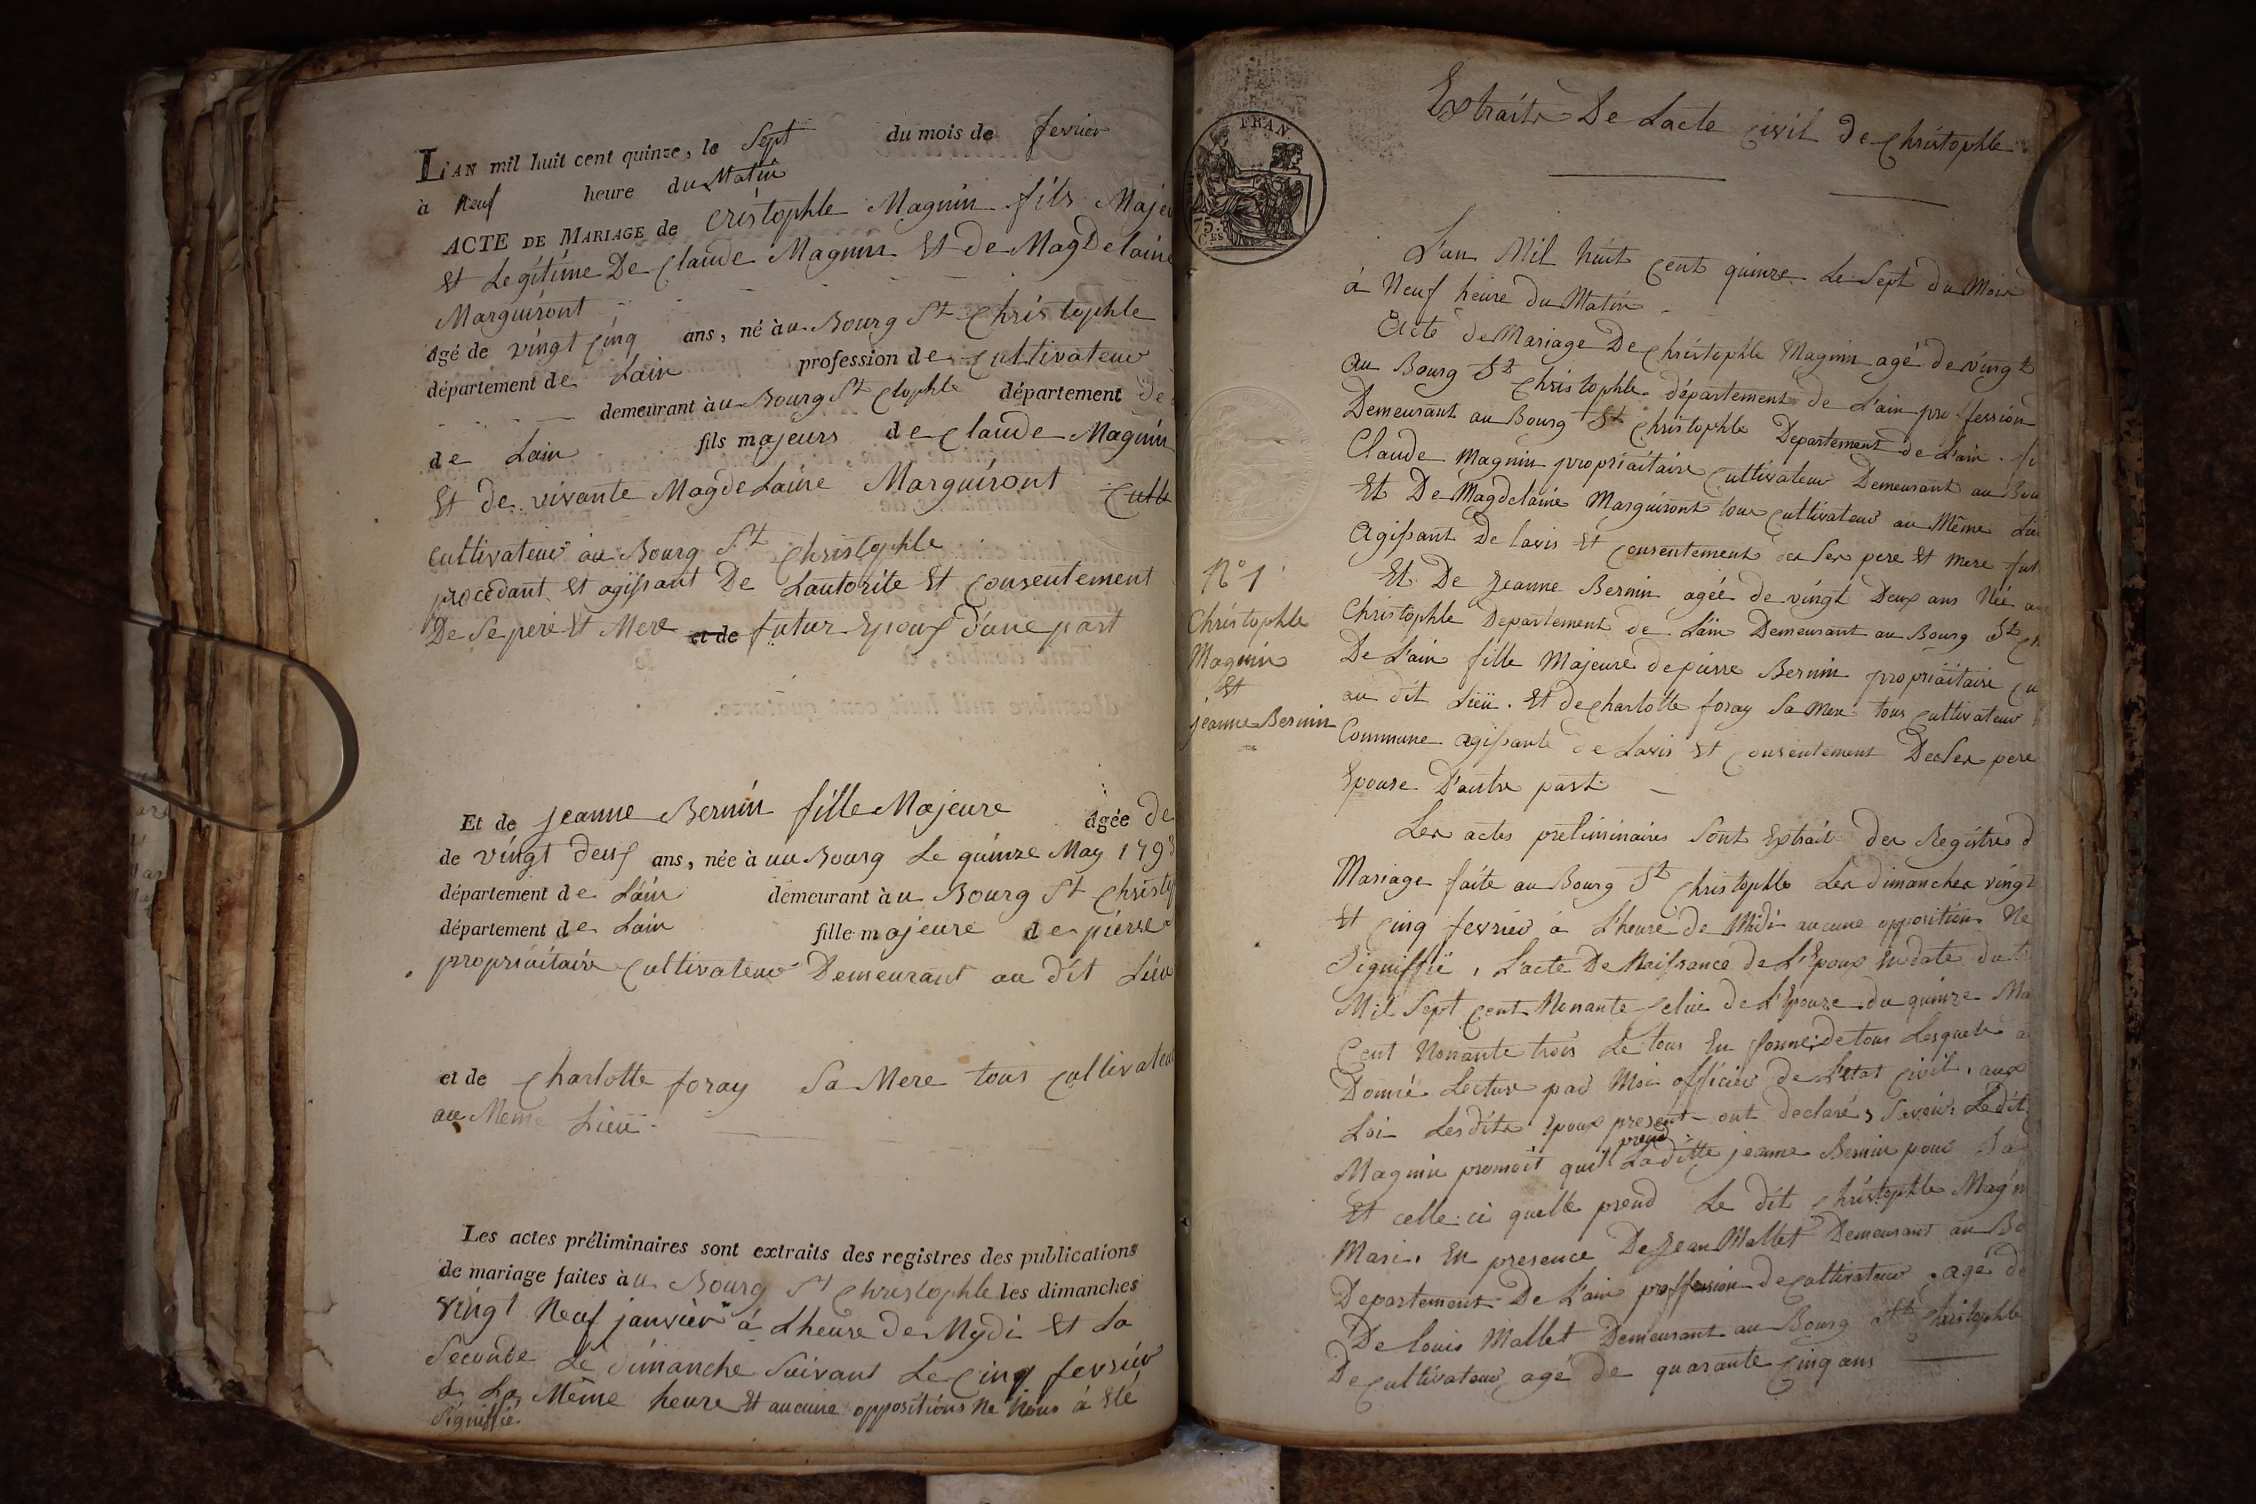 L'AN mil huit cent quinze, le Sept du mois de fevrier
à Neuf heure du Matin
ACTE DE MARIAGE de Cristophle Magnin fils Majeu
Et Legitime De Claude Magnin Et de Magdelaine
Marguiront
âgé de vingt Cinq ans, né à au Bourg St Christophle
département de Lain profession de Cultivateur
demeurant à au Bourg St Ctophle département de
de Lain fils majeurs de Claude Magnin
Et de vivante Magdelaine Marguiront Culti
cultivateur au Bourg St Christophle
procedant et agissant De Lautorite Et Consentement
De Se pere Et Mere et de futur Epoux d'une part
Et de jeanne Bernin fille Majeure âgée de
de vingt deux ans, née à au Bourg Le quinze May 1793
département de Lain demeurant à au Bourg St Christ
département de Lain fille majeure de pierre
propriaitaire Cultivateur Demeurant au dit Lieu
et de Charlotte foray Sa Mere tous Cultivateu
au Meme Lieu
Les actes préliminaires sont extraits des registres des publications
de mariage faites à au Bourg St Christophle les dimanches
vingt Neuf janvier à Lheure de Mydi Et La
Seconde Le dimanche Suivant Le Cinq fevrier
à La Même heure Et aucune oppositions Ne Nous à Eté
Signiffié
FRAN.
75.
CES
Extraits De Lacte Civil de Christophle
L'an Mil huit Cent quinze Le Sept du Mois
à Neuf heure du Matin
Acte de Mariage De Christophle Magnin agé de vingt
Au Bourg St Christophle département de L'ain proffession
Demeurant au Bourg St Christophle Departement de L'ain fi
Claude Magnin propriaitaire Cultivateur Demeurant au Bou
Et De Magdelaine Marguiront tous Cultivateur au Même Lie
Agissant De lavis Et Consentement des Ses pere Et mere fut
N° 1
Christophle
Magnin
Et
jeanne Bernin
Et De Jeanne Bernin agée de vingt Deux ans Née au
Christophle Departement de Lain Demeurant au Bourg St Ch
De L'ain fille Majeure de pierre Bernin propriaitaire Cu
au dit Lieu. Et de Charlotte foray Sa Mere tous Cultivateur
Commune agissante de Lavis Et Consentement De Ses pere
Epouse D'autre part
Les actes preliminaires Sont Extrait des Registres d
Mariage faite au Bourg St Christophle Les dimanches vingt
Et Cinq fevrier à L'heure de Midi aucune opposition Ne
Signiffié, L'acte De Naissance de L'Epoux En date du
Mil Sept Cent Nonante Celui de L'Epouze du quinze Ma
Cent Nonante trois Le tous En forme, de tous Lesquels a
Donné Lecture par Moi officier de L'etat Civil, aux
Loi Lesdits Epoux present ont declaré, Savoir Ledit
Magnin promoit quil prend Laditte jeanne Bernin pour Sa
Et celle ci quelle prend Le dit Christophle Magn
Mari. En presence De Jean Mallet Demeurant au Bo
Departement De L'ain proffession de Cultivateur, agé de
De louis Mallet Demeurant au Bourg St Christophle
De Cultivateur agé de quarante Cinq ans